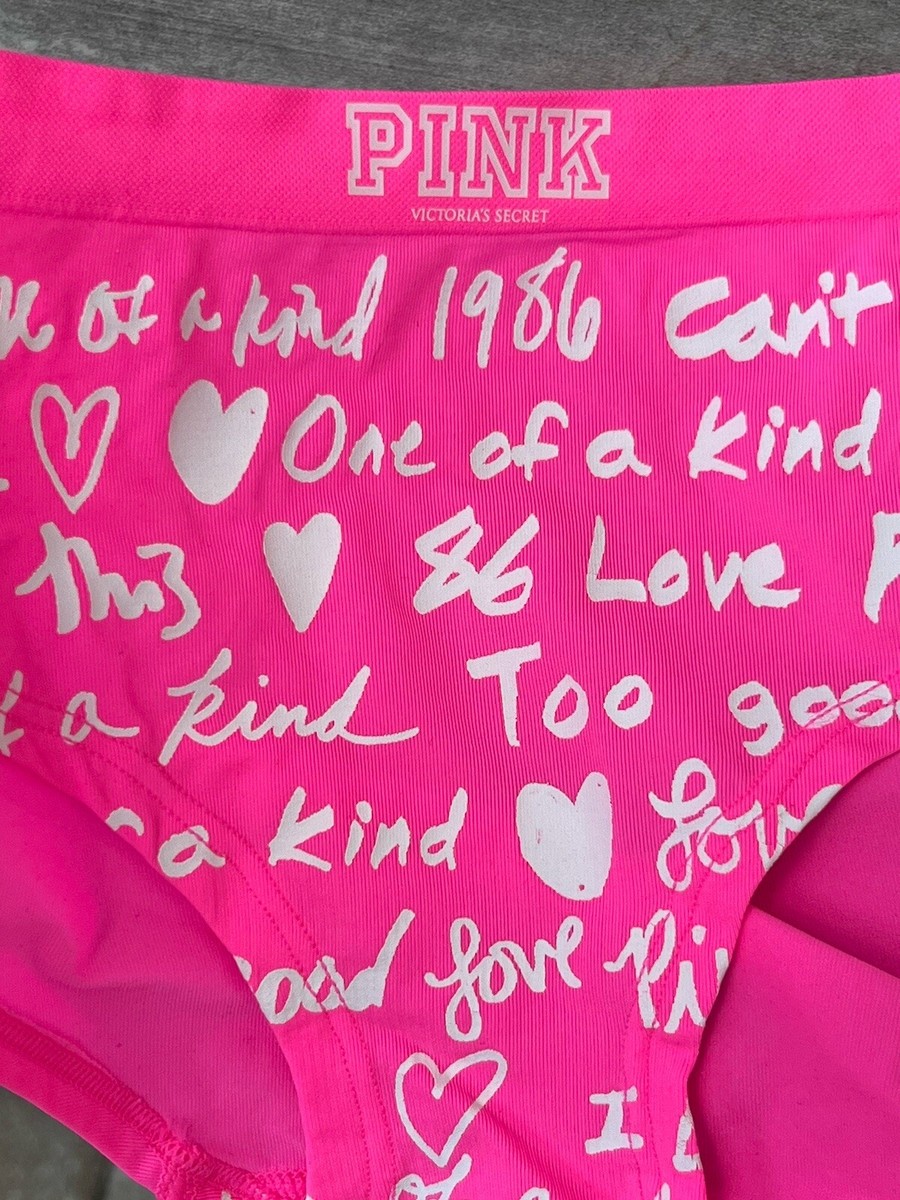 PINK
VICTORIA'S SECRET
of a kind 1986 Can't
One of a Kind
This 86 Love
a kind Too goo
a Kind Love
ood love Pi
I
of a